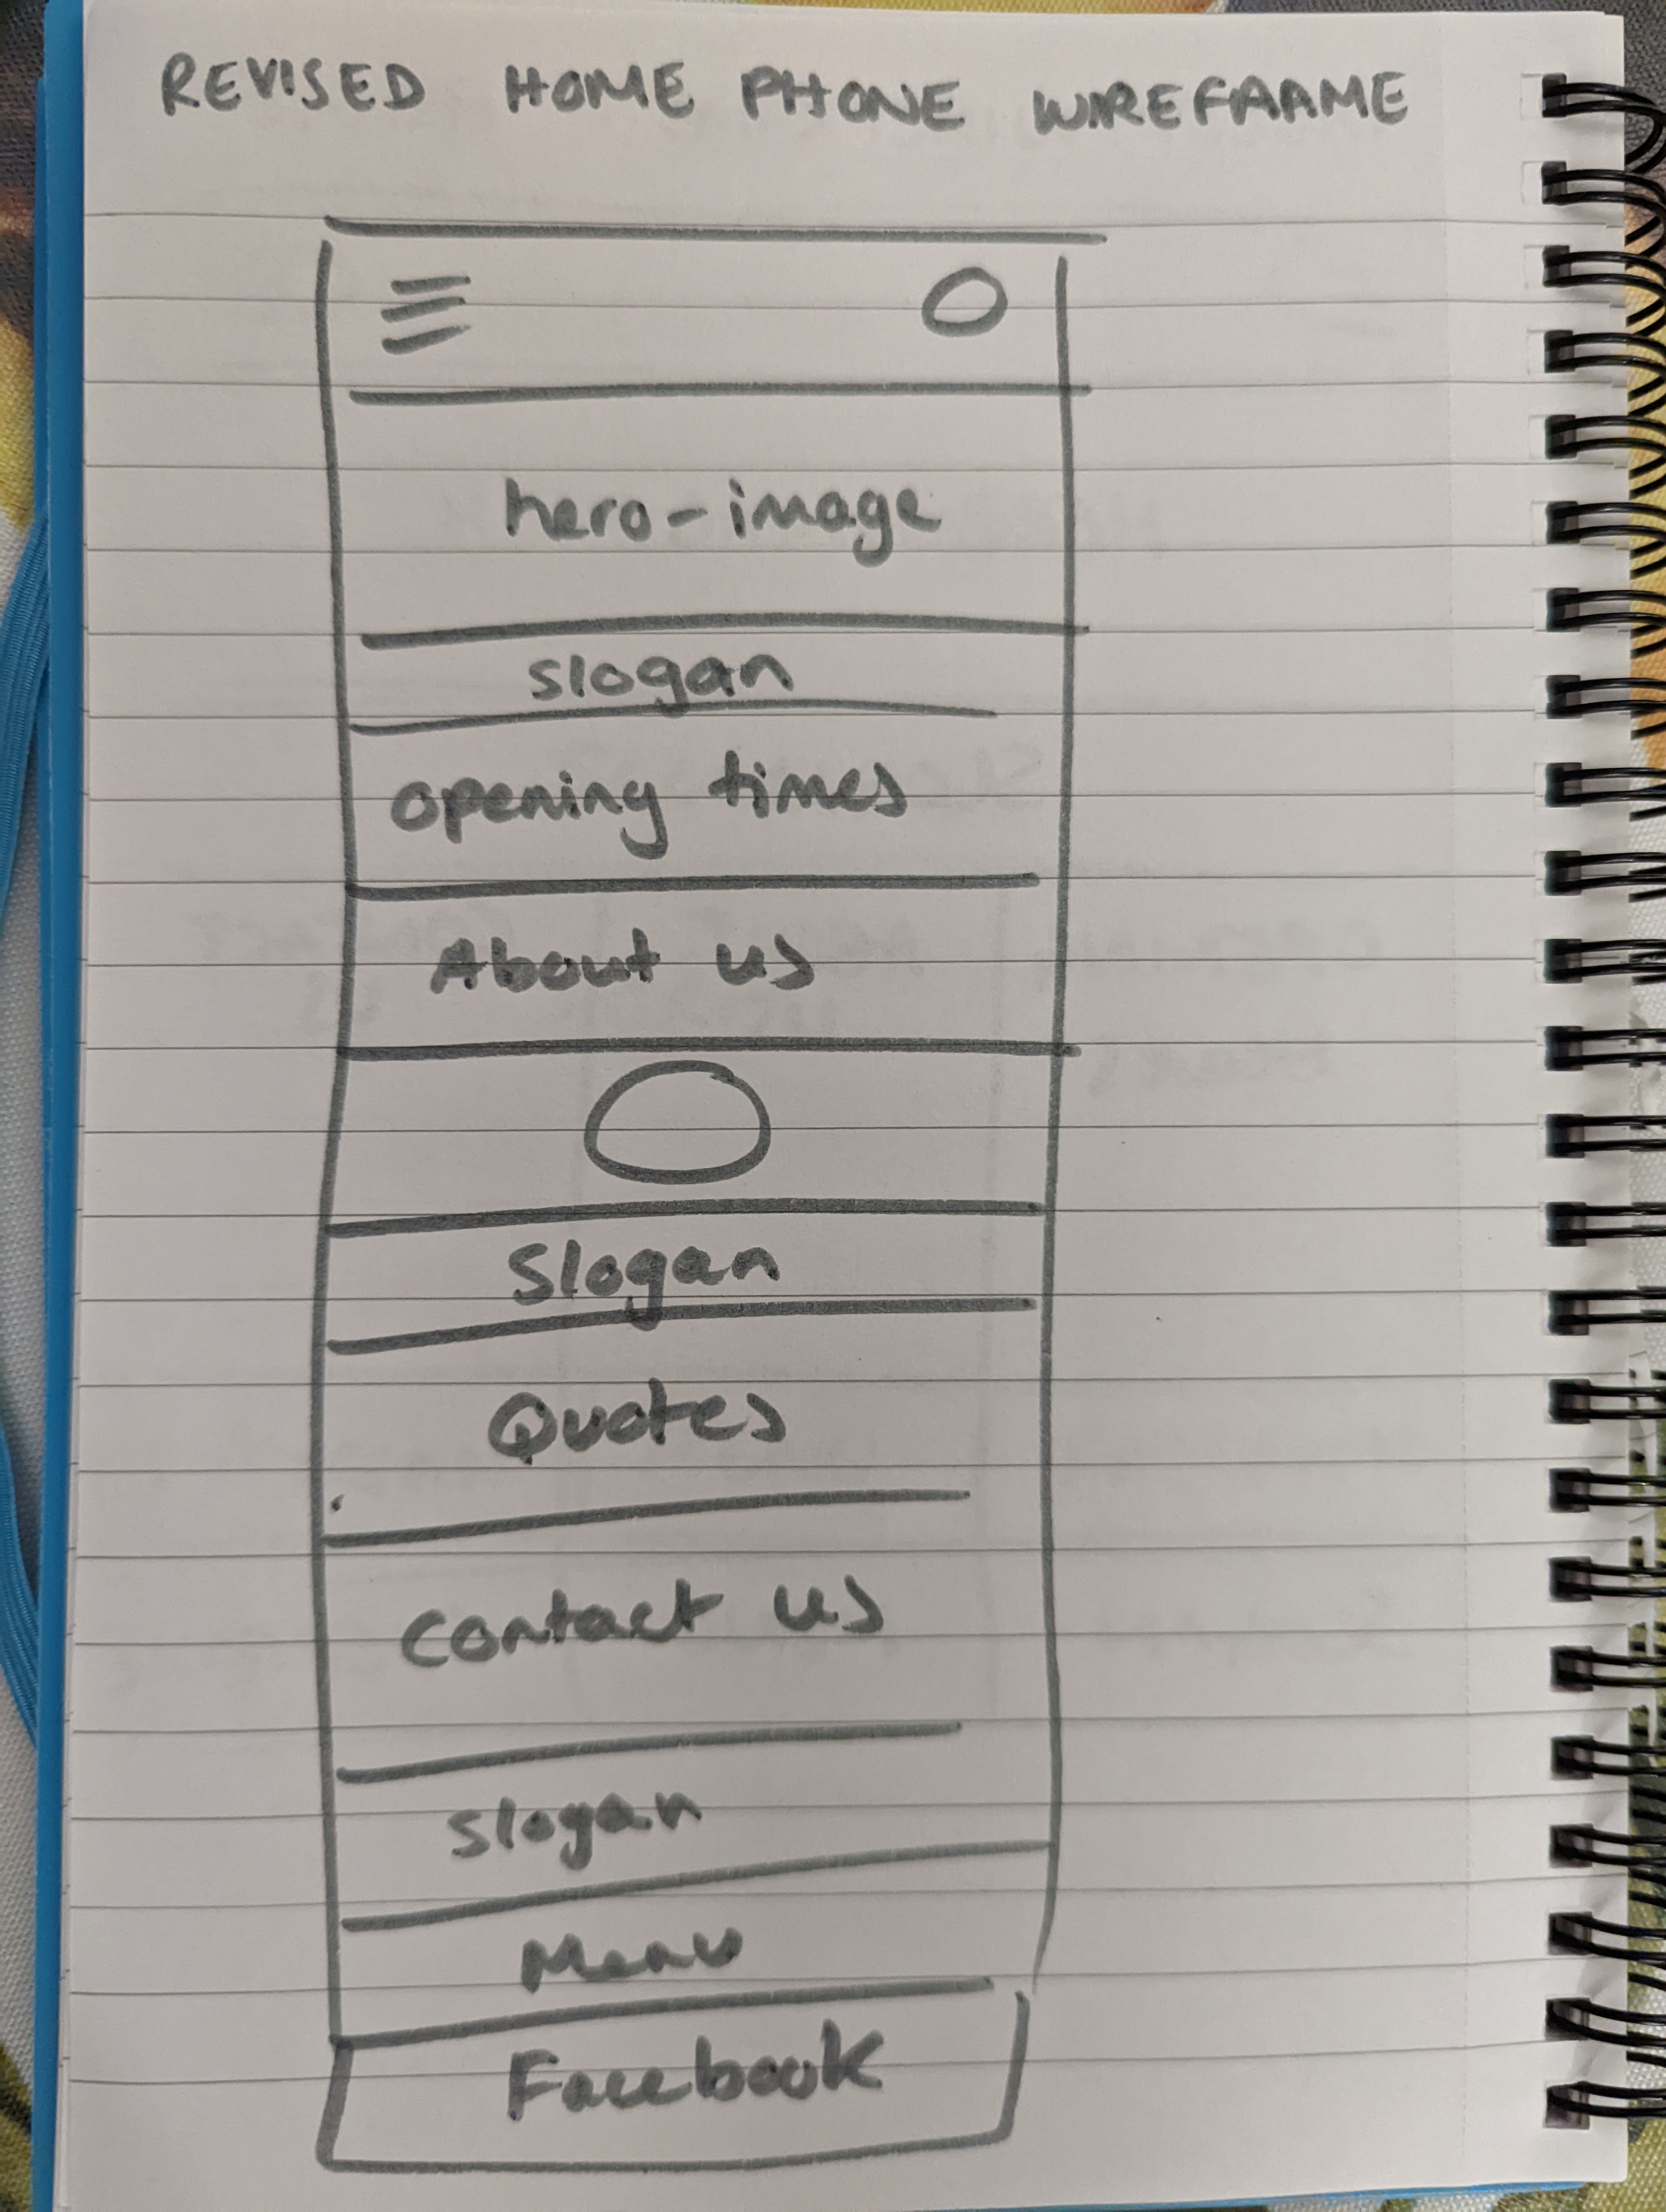 REVISED HOME PHONE WIREFRAME
hero-image
slogan
opening times
About us
Slogan
Quotes
contact us
slogan
Menu
Facebook